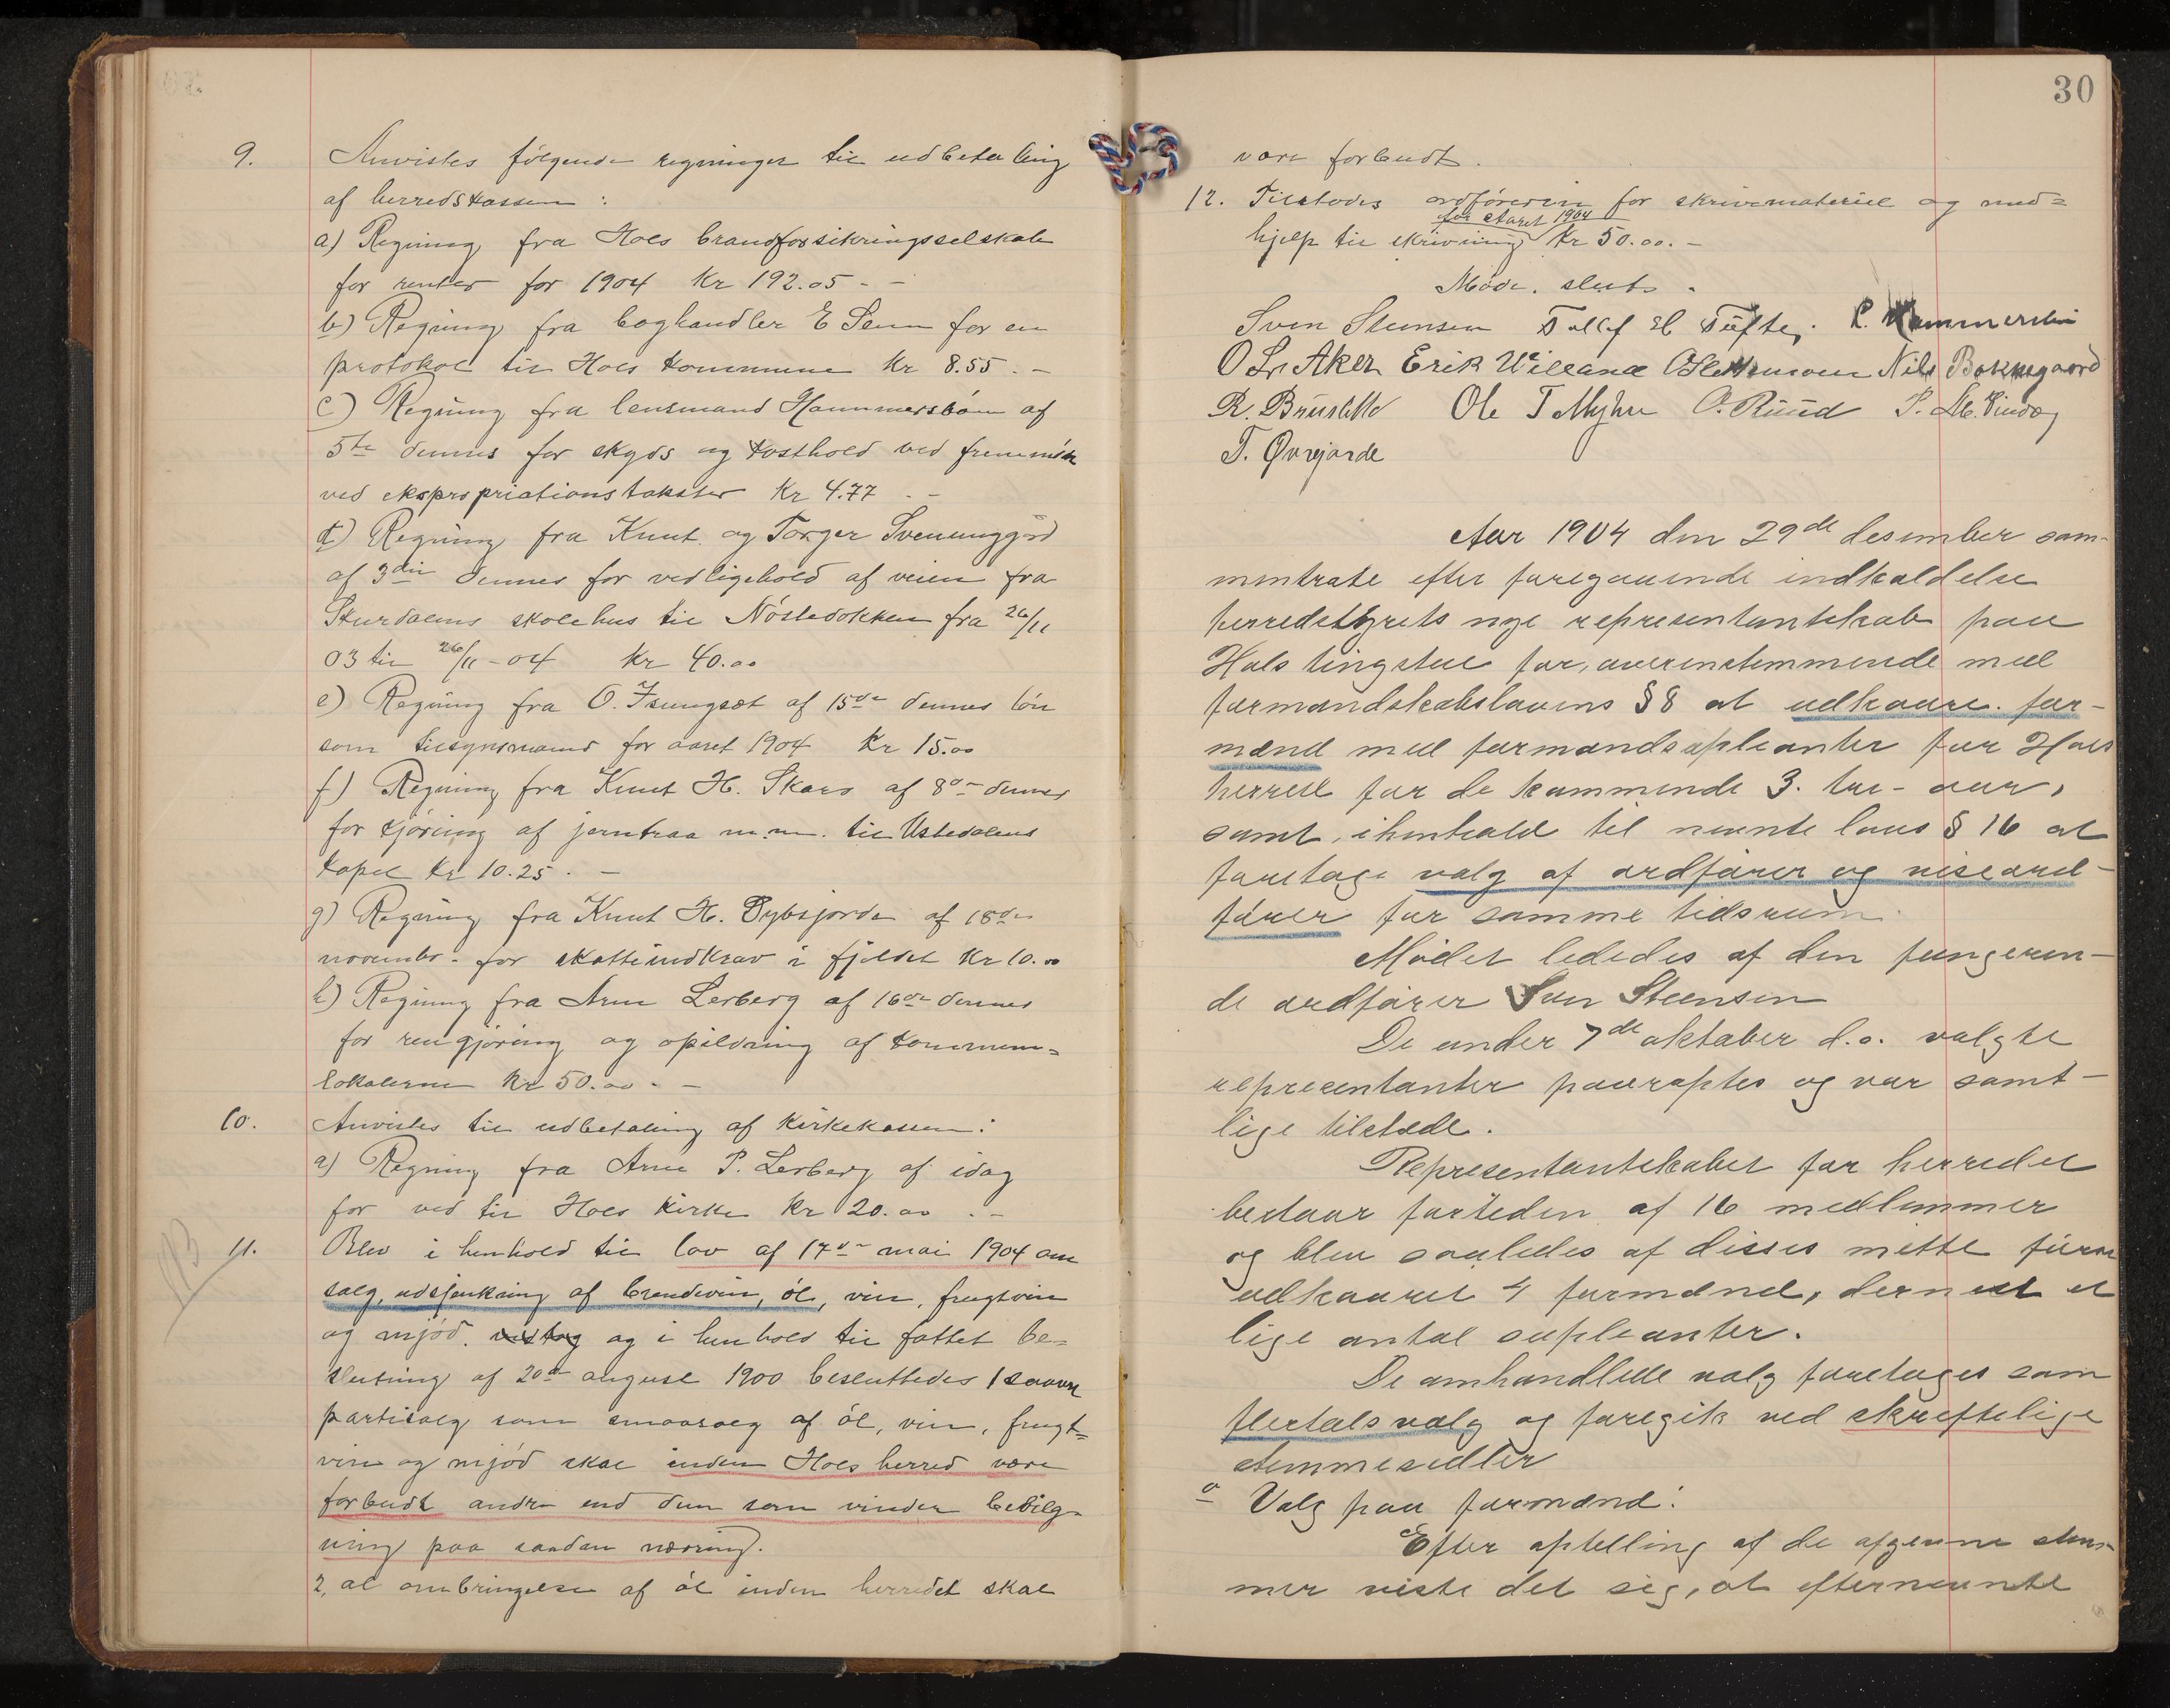 9. Anvistes følgende regninger til udbetaling
af herredskassen:
a) Regning fra Hols brandforsikringsselskab
for renter for 1904 Kr 192.05 - -
b) Regning fra boghandler E Senn for en
protokol til Hols kommune Kr 8.55. -
c) Regning fra lensmand Hammersbøen af
5te dennes for skyds og kosthold ved fremmøde
ved ekspropriationstakster Kr 4.77 . -
d) Regning fra Knut og Torger Sveinunggård
af 3die dennes for vedligehold af veien fra
Skurdalens skolehus til Nöstedokken fra 26/11
03 til 26/11-04 Kr 40.00
e) Regning fra O. Isungset af 15de dennes lön
som tilsynsmand for aaret 1904 Kr 15.00
f) Regning fra Knut H. Skaro af 8de dennes
for kjöring af jerntraa m.m. til Ustedalens
kapel Kr 10.25. -
g) Regning fra Knut H. Sybsjorde af 18de
november for skatteindkrav i fjeldet Kr 10.00
h) Regning fra Arne Lerberg af 16de dennes
for rengjöring og opildning af kommune=
lokalerne Kr 50.00 - -
10. Anvistes til udbetaling af kirkekassen:
a) Regning fra Arne P. Lerberg af idag
for ved til Hols kirke Kr 20.00 . -
11. Blev i henhold til lov af 17de mai 1904 om
salg, udskjænkning af brændevin, öl, vin, frugtvin
og mjød. og i henhold til fattet be=
slutning af 20de august 1900 besluttedes 1 saavel
partisalg som smaasalg af öl, vin, frugt=
vin og mjöd skal inden Hols herred være
forbudt andre end dem som vinder bevilg-
ning paa saadan næring.
2, at ombringelse af öl inden herredet skal
30
være forbudt.
12. Tilstodes ordføreren for skrivemateriel og med=
for Aaret 1904
hjelp til skrivning Kr 50.00. -
Møde. slut.
Sven Stensen Tollef H Tufte. L. Hammersbøen
O Sr. Aker Erik Villand Nils Bakkegaard
R. Brusletto Ole T Myhre O. Ruud
T. Øvrejorde
Aar 1904 den 29de desember sam-
mentraate efter foregaaende indkaldelse
herredstyrets nye representantskab paa
Hols tingstue for, overenstemmende med
formandskabslovens §8 at udkaare for-
mænd med formandsupleanter for Hols
herred for de kommende 3. tre- aar,
samt, ihenhold til nevnte lovs § 16 at
foretage valg af ordfører og viseord-
fører for samme tidsrum.
Mödet lededes af den fungeren-
de ordfører Sven Steensen
De under 7de oktober d.a. valgte
representanter paaroptes og var samt-
lige tilstede.
Representantskabet for herredet
bestaar fortiden af 16 medlemmer
og blev saaledes af disses mitte först
udkaaret 4 formænd, dernest et
lige antal supleanter.
De omhandlede valg foretages som
flertalsvalg og foregik ved skreftelige
stemmesedler
a Valg paa formænd:
Efter optelling af de afgivne stem-
mer viste det sig, at efternevnte